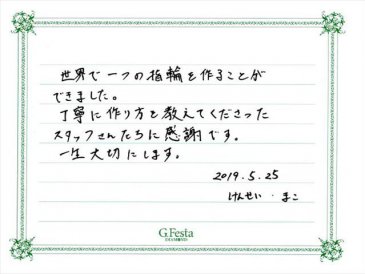 世界で一つの指輪を作ることが
できました。
丁寧に作り方を教えてくださった
スタッフさんたちに感謝です。
一生大切にします。
2019.5.25
けんせい・まこ
G.Festa
DIAMOND